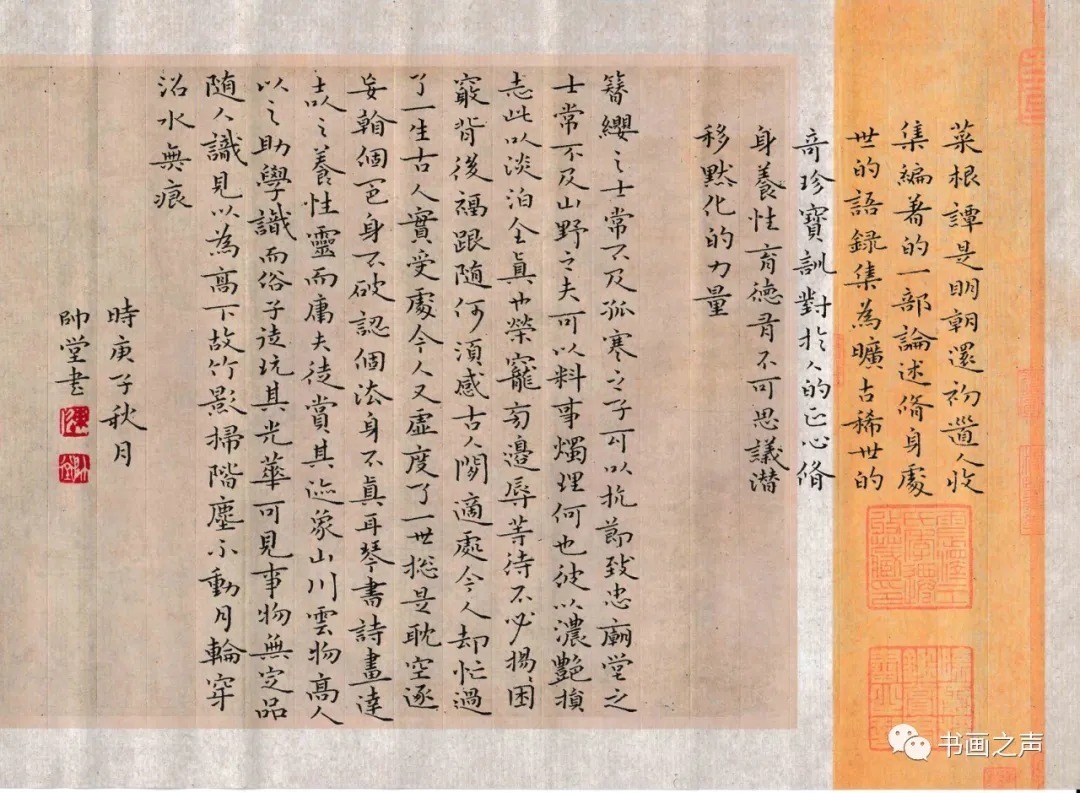 菜根譚是明朝還初道人收
集編著的一部論述脩身處
世的語録集為曠古稀世的
奇珍寶訓對於人的正心脩
身養性育德有不可思議潜
移默化的力量
簪纓之士常不及孤寒之子可以抗節致忠廟堂之
士常不及山野之夫可以料事燭理何也彼以濃艷損
志此以淡泊全真也榮寵旁邊辱等待不必揚困
窮背後福跟随何須感古人閒適處今人却忙過
了一生古人實受處今人又虚度了一世総是耽空逐
妄翰個色身不破認個法身不真耳琴書詩畫達
士以之養性靈而庸夫徒賞其迹象山川雲物高人
以之助學識而俗子徒玩其光華可見事物無定品
随人識見以為高下故竹影掃階塵不動月輪穿
沼水無痕
時庚子秋月
帥堂書
书画之声